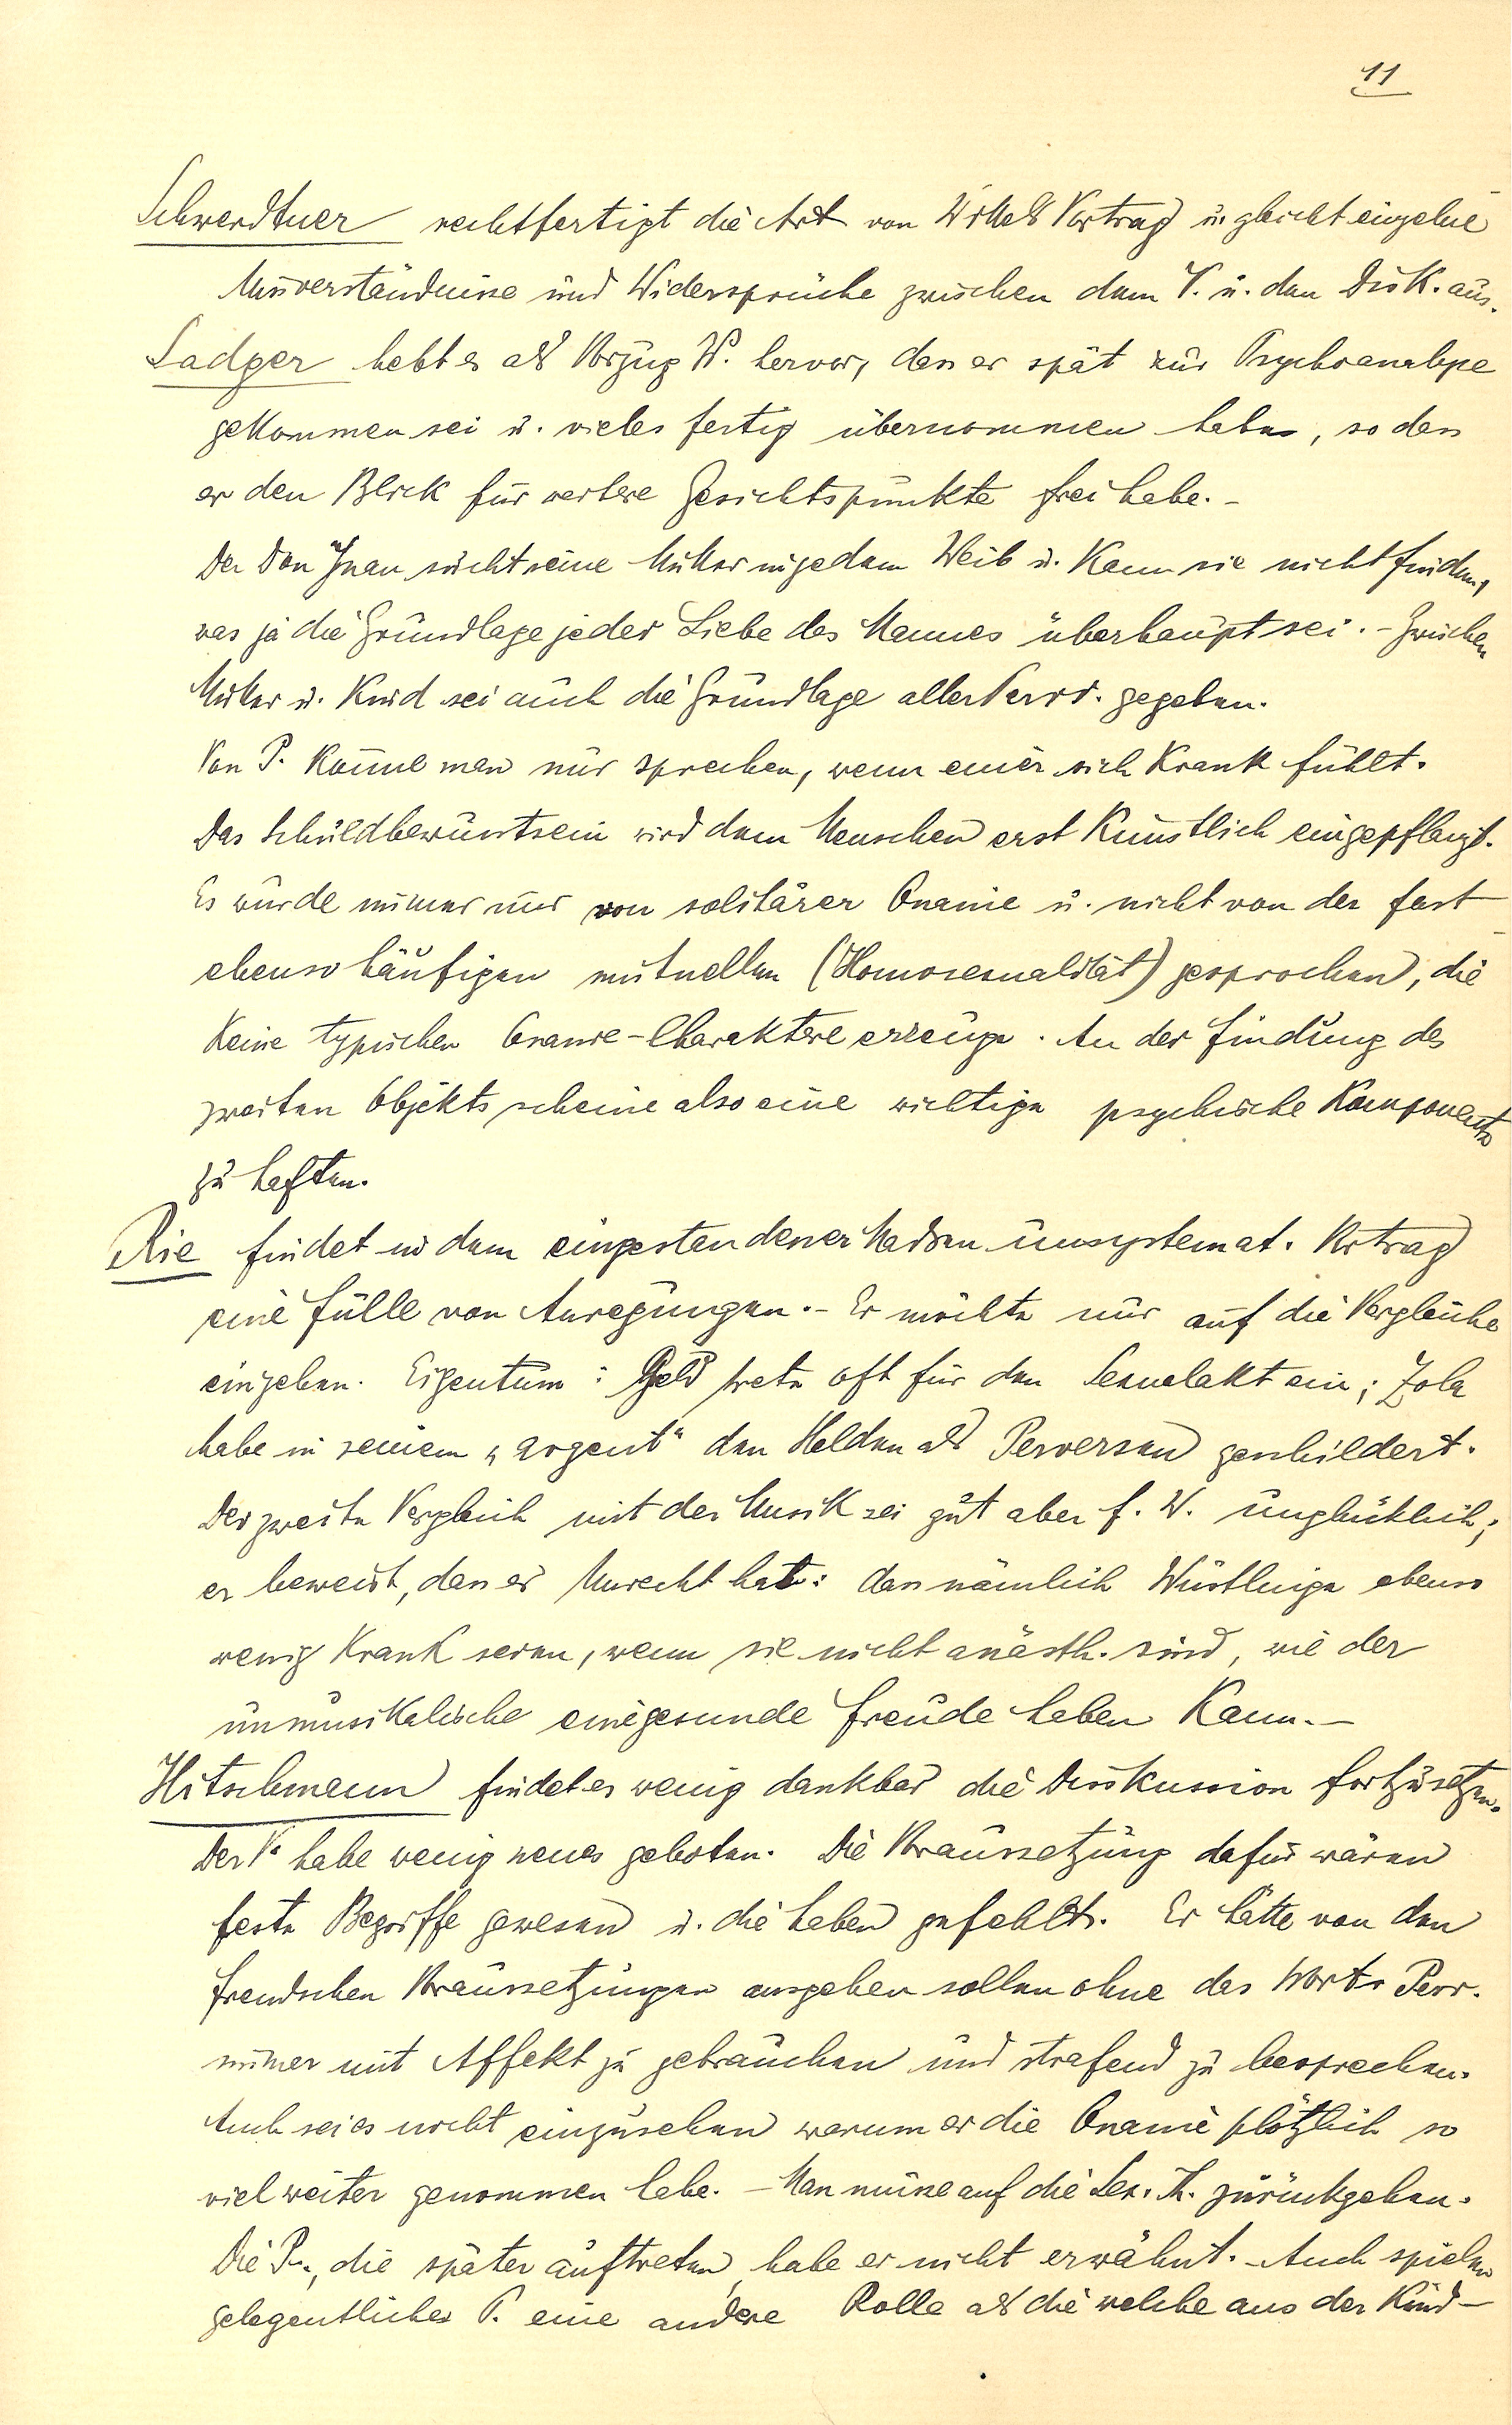 11
Schwerdtner rechtfertigt die Art von Wittels Vortrag u. gleicht einzelne
Missverständnisse und Widersprüche zwischen dem V. u. den Disk. aus.
Sadger hebt es als Vorzug W. hervor, dass er spät zur Psychoanalyse
gekommen sei u. vieles fertig übernommen habe, so dass
er den Blick für weitere Gesichtspunkte frei habe.-
Der Don Juan sucht seine Mutter in jedem Weib u. kann sie nicht finden,
was ja die Grundlage jeder Liebe des Mannes überhaupt sei. - Zwischen
Mutter u. Kind sei auch die Grundlage aller Perv. gegeben.
Von P. könne man nur sprechen, wenn einer sich krank fühlt.
Das Schuldbewusstsein wird dem Menschen erst künstlich eingepflanzt.
Es würde immer nur von solitärer Onanie u. nicht von der fast
ebenso häufigen mutuellen (Homosexualität) gesprochen, die
keine typischen Onanie-Charaktere erzeuge. An der Findung des
zweiten Objekts scheine also eine wichtige psychische Komponente
zu haften.
Rie findet in dem eingestandener Massen unsystemat. Vortrag
eine Fülle von Anregungen.- Er möchte nur auf die Vergleiche
eingehen. Eigentum: Geld trete oft für den Sexualakt ein; Zola
habe in seinem „argent" den Helden als Perversen geschildert.
Der zweite Vergleich mit der Musik sei gut aber f. W. unglücklich;
er beweist, dass er Unrecht hat: dass nämlich Wüstlinge ebenso
wenig krank seien, wenn sie nicht anästh. sind, wie der
unmusikalische eine gesunde Freude haben kann.-
Hitschmann findet es wenig dankbar die Diskussion fortzusetzen.
Der V. habe wenig neues geboten. Die Voraussetzung dafür wären
feste Begriffe gewesen u. die haben gefehlt. Er hätte von den
Freudschen Voraussetzungen ausgehen sollen ohne das Wort Perv.
immer mit Affekt zu gebrauchen und strafend zu besprechen.
Auch sei es nicht einzusehen warum er die Onanie plötzlich so
viel weiter genommen habe. - Man müsse auf die Sex. Th. zurückgehen.
Die P., die später auftreten, habe er nicht erwähnt. - Auch spielen
gelegentliche P. eine andere Rolle als die welche aus der Kind-